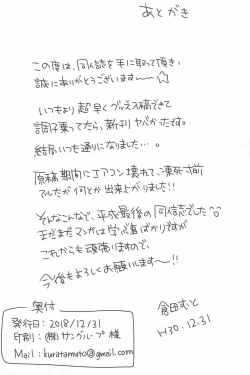 あとがき
この度は、同人誌を手に取って頂き、
誠にありがとうございます〜〜☆
いつもより超早くグッズ入稿できて
調子乗ってたら、新刊ヤバかったです。
結局いつも通りになりました…。
原稿期間にエアコン壊れて、凍死寸前
でしたが何とか出来上がりました!!
そんなこんなで、平成最後の同人誌でした^o^
まだまだマンガは学ぶ事ばかりですが
これからも頑張りますので、
今後もよろしくお願いします〜!!
奥付
発行日：2018/12/31
印刷：㈱サングループ 様
Mail：kuratamuto@gmail.com
倉田むと
H30.12.31